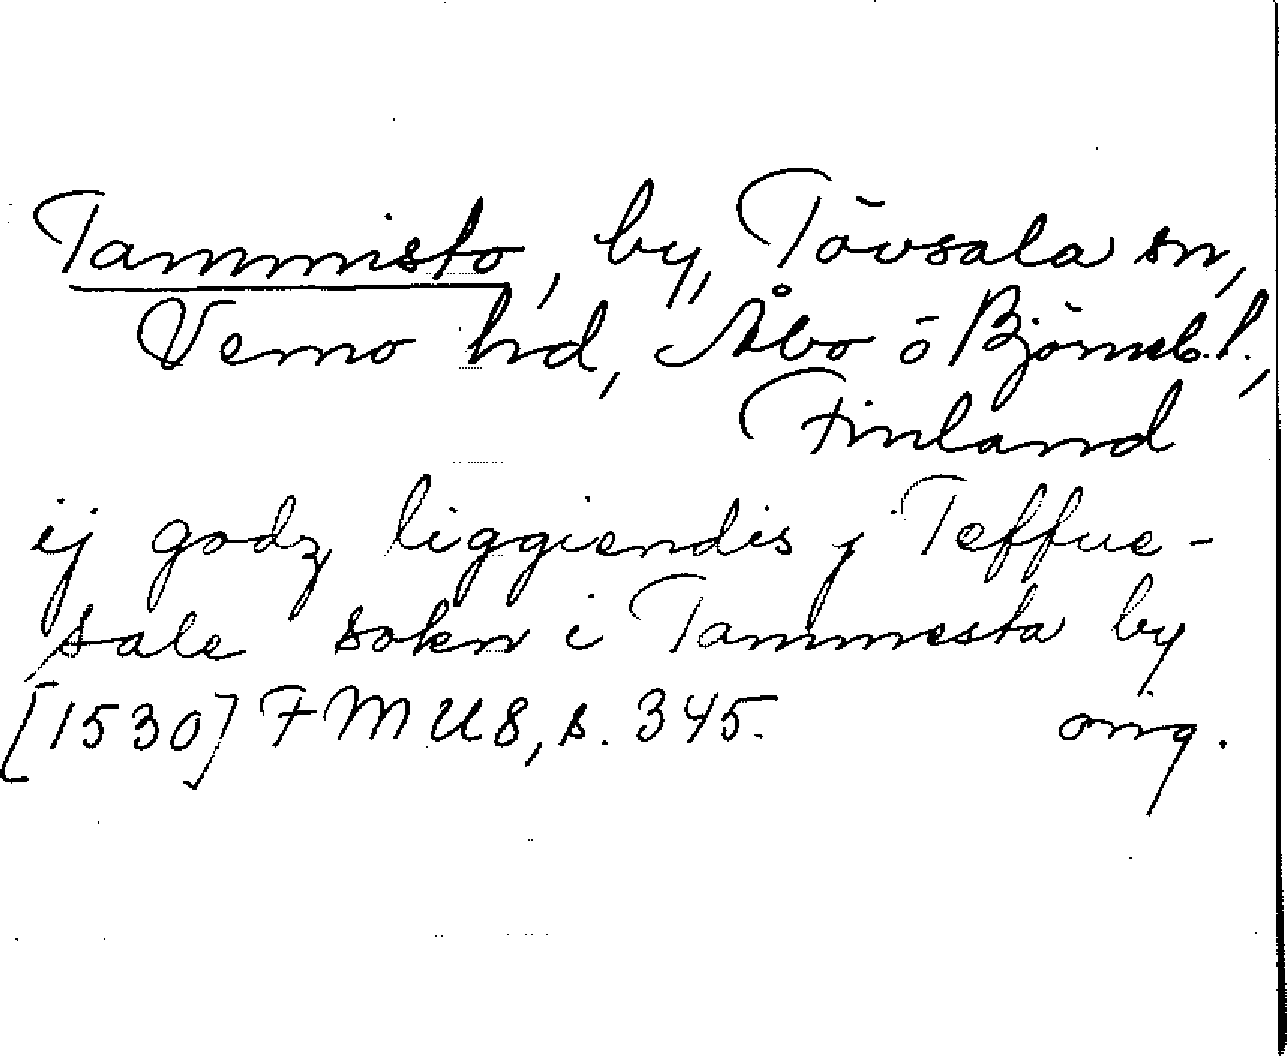 Tammisto, by, Tövsala sn,
Vemo hd, Åbo o Björneb. l.,
Finland
ij godz liggiendis j Teffue-
sale sokn i Tammesta by
[1530] FMU 8, s. 345. orig.